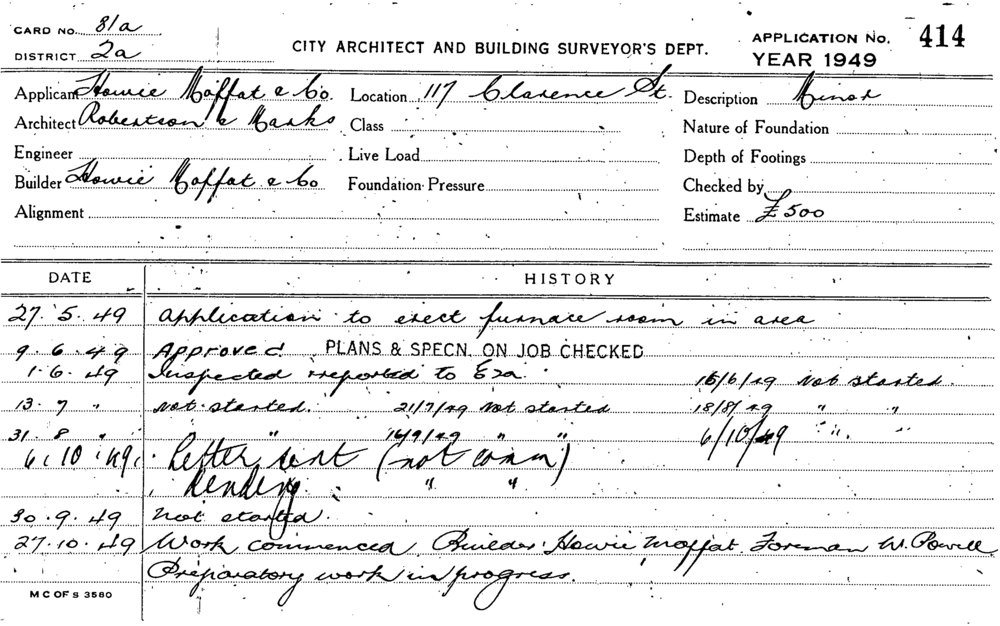 CARD NO. 81a
DISTRICT 2a
CITY ARCHITECT AND BUILDING SURVEYOR'S DEPT.
APPLICATION NO. 414
YEAR 1949
Applicant Howie Moffat & Co. Location 117 Clarence St. Description Minor
Architect Robertson & Marks Class Nature of Foundation
Engineer Live Load Depth of Footings
Builder Howie Moffat & Co Foundation Pressure Checked by
Alignment Estimate £500
DATE HISTORY
27. 5. 49 Application to erect furnace room in area
9. 6. 49 Approved PLANS & SPECN. ON JOB CHECKED
1. 6. 49 Inspected & reported to 15/6/49 Not started.
13. 7 " Not started. 21/7/49 Not started 18/8/49 " "
31. 8 " " 14/9/49 " " 6/10/49 " "
6. 10. 49. Letter sent (not comm)
Pending " "
30. 9. 49 Not started.
27. 10. 49 Work commenced. Builder Howie Moffat. Foreman W. Powell
Preparatory work in progress.
M C OF S 3580